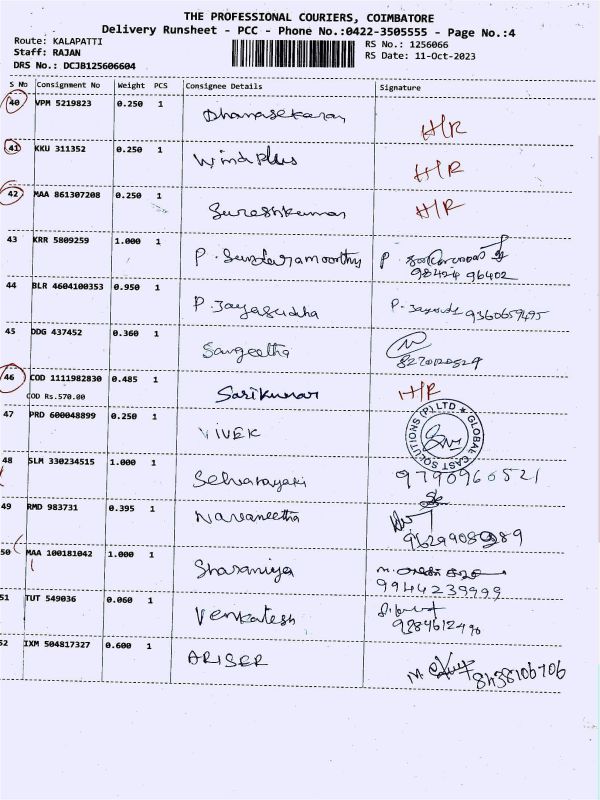 THE PROFESSIONAL COURIERS, COIMBATORE
Delivery Runsheet - PCC - Phone No.:0422-3505555 - Page No.:4
Route: KALAPATTI
RS No.: 1256066
Staff: RAJAN
RS Date: 11-Oct-2023
DRS No.: DCJB125606604
S No Consignment No Weight PCS Consignee Details Signature
40 VPM 5219823 0.250 1 Dhanasekaran H/R
41 KKU 311352 0.250 1 Windplus H/R
42 MAA 861307208 0.250 1 Sureshkumar H/R
43 KRR 5809259 1.000 1 P. Sundaramoorthy P
98424 96402
44 BLR 4604100353 0.950 1 P. Jayasudha P. Jayasudha 9360659495
45 DDG 437452 0.360 1 Sangeetha
8270120529
46 COD 1111982830 0.485 1 Sarikumar H/R
COD Rs.570.00
47 PRD 600048899 0.250 1 VIVEK
GLOBAL EAST SOLUTIONS (P) LTD
48 SLM 330234515 1.000 1 Selvanayaki 9790960521
49 RMD 983731 0.395 1 Navaneetha
50 MAA 100181042 1.000 1 Sharaniya
9944239999
51 TUT 549036 0.060 1 Venkatesh
52 IXM 504817327 0.600 1 ARISER M 8438106706